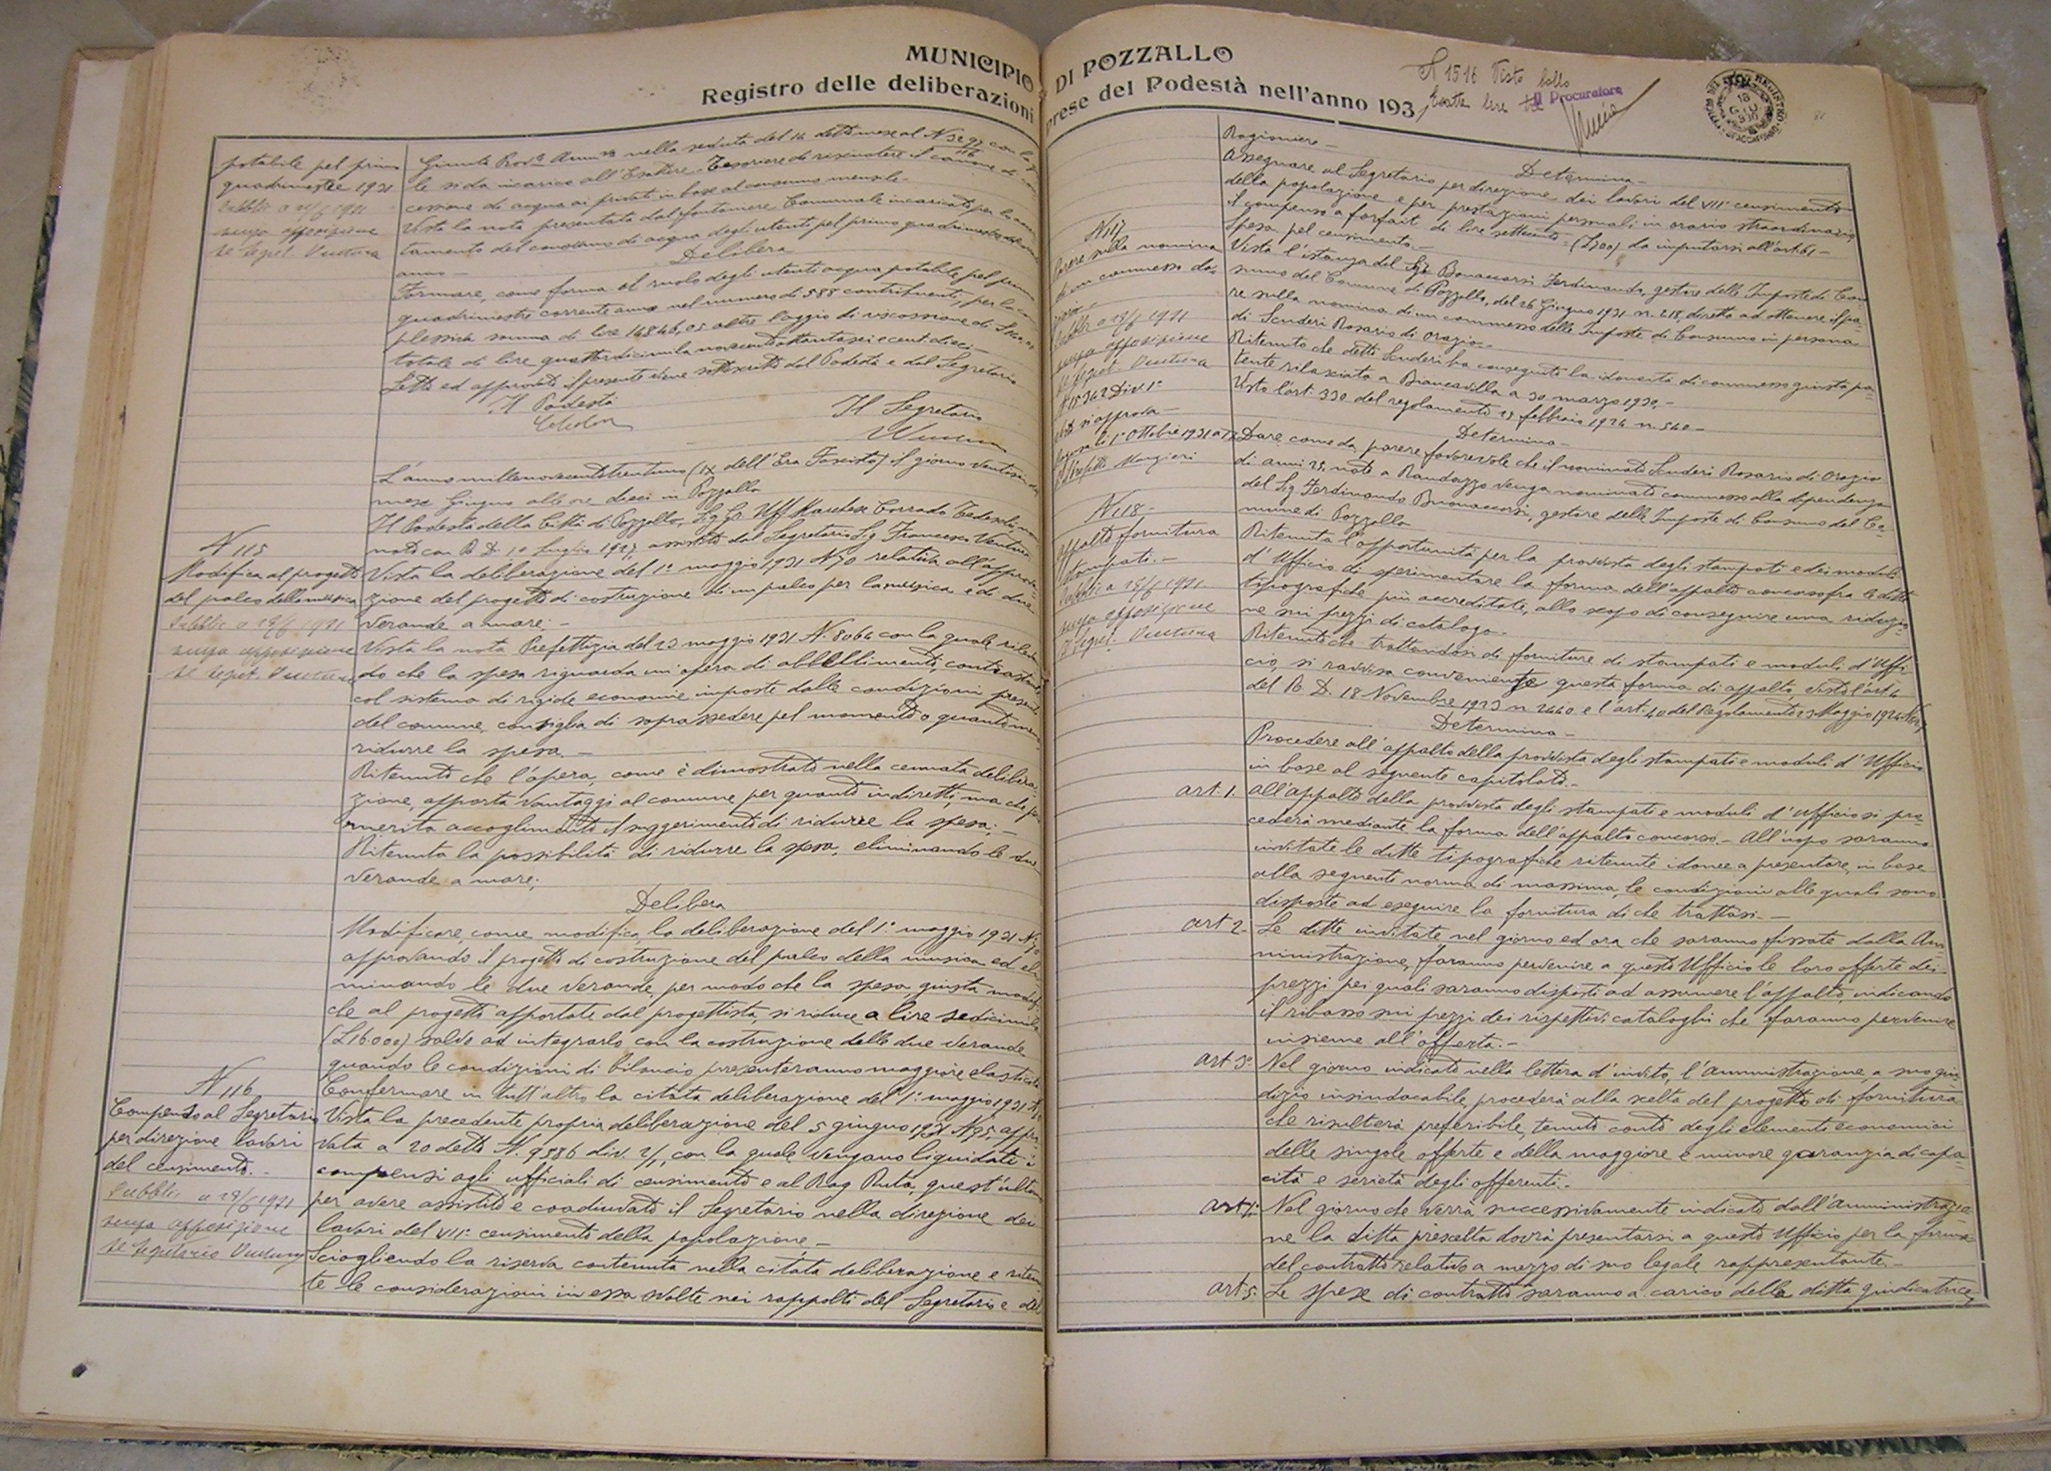 MUNICIPIO DI POZZALLO
Registro delle deliberazioni prese del Podestà nell'anno 193
N 1516 Visto bollo
Esatte lire
Il Procuratore
potabile pel primo
quadrimestre 1931
Pubblic a 21/6 1931
senza opposizione
Il Segret. Ventura
Giunta Prov.le Amm.va nella seduta del 14 detto mese al N 3297 con la
le si da incarico all'Esattore Tesoriere di riscuotere il canone di con
cessione di acqua ai privati in base al consumo mensile.
Vista la nota presentata dal fontaniere Comunale incaricato per l'
tamento del consumo di acqua degli utenti pel primo quadrimestre
anno —
Delibera
Formare, come forma il ruolo degli utenti acqua potabile pel primo
quadrimestre corrente anno nel numero di 588 contribuenti, per la com
plessiva somma di lire 14846,05 oltre l'aggio di riscossione di
totale di lire quattordicimila novecentottantasei e cent dieci —
Letto ed approvato il presente viene sottoscritto dal Podestà e dal Segretario
Il Podestà
Il Segretario
L'anno millenovecentotrentuno (IX dell'Era Fascista) il giorno ventisei del
mese Giugno alle ore dieci in Pozzallo
Il Podestà della Città di Pozzallo, Sig. Gr. Uff. Marchese Corrado Tedeschi, no
nato con R. D. 10 Luglio 1927, assistito dal Segretario Sig. Francesco Ventura
N 115
Modifica al progetto
del palco della musica
Pubblic a 28/6 1931
senza opposizione
Il Segret. Ventura
Vista la deliberazione del 1° maggio 1931 N 70 relativa all'approva
zione del progetto di costruzione di un palco per la musica e di due
verande a mare; —
Vista la nota Prefettizia del 23 maggio 1931 N. 8064 con la quale rilevan
do che la spesa riguarda un'opera di abbellimento, contrastante
col sistema di rigide economie imposte dalle condizioni presenti
del comune, consiglia di soprassedere pel momento o quantomeno
ridurre la spesa. —
Ritenuto che l'opera, come è dimostrato nella cennata delibera
zione, apporta vantaggi al comune per quanto indiretti, ma che però
merita accoglimento il suggerimento di ridurre la spesa; —
Ritenuta la possibilità di ridurre la spesa, eliminando le due
verande a mare;
Delibera
Modificare, come modifica, la deliberazione del 1° maggio 1931 N 70
approvando il progetto di costruzione del palco della musica ed eli
minando le due verande, per modo che la spesa, giusta modifi
che al progetto apportate dal progettista, si riduce a lire sedicimila
(L16.000) salvo ad integrarlo con la costruzione delle due verande
quando le condizioni di bilancio presenteranno maggiore elasticità
Confermare in tutt'altro la citata deliberazione del 1° maggio 1931 N 70
N 116
Compenso al Segretario
per direzione lavori
del censimento. —
Pubblic a 28/6 1931
senza opposizione
Il Segretario Ventura
Vista la precedente propria deliberazione del 5 giugno 1931 N 95, appro
vata a 20 detto N. 9586 div. 2/1, con la quale vengano liquidati i
compensi agli ufficiali di censimento e al Rag Ruta, quest'ultimo
per avere assistito e coadiuvato il Segretario nella direzione dei
lavori del VII° censimento della popolazione, —
Sciogliendo la riserva contenuta nella citata deliberazione e ritenu
te le considerazioni in essa svolte nei rapporti del Segretario e del
Ragioniere —
Determina —
Assegnare al Segretario per direzione dei lavori del VII° censimento
della popolazione e per prestazioni personali in orario straordinario
il compenso a forfait di lire settecento (L700) da imputarsi all'art 61 —
Spesa pel censimento. —
N 117
Parere sulla nomina
di un commesso da-
ziario
Pubblic a 28/6 1931
senza opposizione
Il Segret. Ventura
N 15362 Div. 1ª
Visto si approva —
Ragusa li 1° Ottobre 1931 a IX
Il Prefetto Mangieri
Vista l'istanza del Sig. Bonaccorsi Ferdinando, gestore delle Imposte di Con
sumo del Comune di Pozzallo, del 26 Giugno 1931 n. 218, diretta ad ottenere il pa-
re sulla nomina di un commesso delle Imposte di Consumo in persona
di Scuderi Rosario di Orazio. —
Ritenuto che detto Scuderi ha conseguito la idoneità di commesso giusta pa-
tente rilasciata a Biancavilla a 30 marzo 1930, —
Visto l'art. 330 del regolamento 29 febbraio 1924 n. 540 —
Determina —
Dare, come da, parere favorevole che il nominato Scuderi Rosario di Orazio
di anni 29, nato a Randazzo venga nominato commesso alla dipendenza
del Sig. Ferdinando Buonaccorsi, gestore delle Imposte di Consumo del Co-
mune di Pozzallo
N 118 —
Appalto fornitura
stampati. —
Pubblic a 28/6 1931
senza opposizione
Il Segret. Ventura
Ritenuta l'opportunità per la provvista degli stampati e dei moduli
d'Ufficio di sperimentare la forma dell'appalto concorso fra le ditte
tipografiche più accreditate, allo scopo di conseguire una riduzio-
ne sui prezzi di catalogo. —
Ritenuto che trattandosi di forniture di stampati e moduli d'Uffi-
cio, si ravvisa conveniente questa forma di appalto, visto l'art 4
del R. D. 18 Novembre 1923 n 2440 e l'art. 40 del Regolamento 23 Maggio 1924 N 827
Determina —
Procedere all'appalto della provvista degli stampati e moduli d'Ufficio
in base al seguente capitolato. —
art 1. All'appalto della provvista degli stampati e moduli d'ufficio si pro-
cederà mediante la forma dell'appalto concorso — All'uopo saranno
invitate le ditte tipografiche ritenute idonee a presentare, in base
alla seguenti norma di massima, le condizioni alle quali sono
disposte ad eseguire la fornitura di che trattasi. —
art 2. Le ditte invitate nel giorno ed ora che saranno fissate dalla Am
ministrazione, faranno pervenire a questo Ufficio le loro offerte dei
prezzi pei quali saranno disposti ad assumere l'appalto, indicando
il ribasso sui prezzi dei rispettivi cataloghi che faranno pervenire
insieme all'offerta. —
art 3° Nel giorno indicato nella lettera d'invito, l'Amministrazione, a suo giu
dizio insindacabile, procederà alla scelta del progetto di fornitura
che risulterà preferibile, tenuto conto degli elementi economici
delle singole offerte e della maggiore e minore garanzia di capa-
cità e serietà degli offerenti. —
art 4° Nel giorno che verrà successivamente indicato dall'Amministrazio-
ne la ditta prescelta dovrà presentarsi a questo Ufficio per la firma
del contratto relativo a mezzo di suo legale rappresentante. —
art 5. Le spese di contratto saranno a carico della ditta giudicatrice,